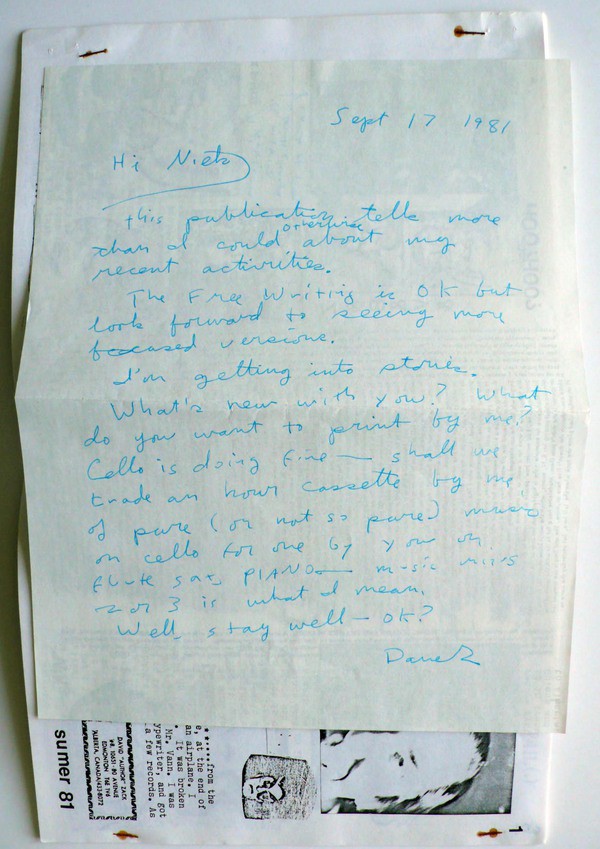 Sept 17 1981
Hi Niels
this publication tells more
than I could otherwise about my
recent activities.
The Free Writing is OK but
look forward to seeing more
focused versions.
I'm getting into stories.
What's new with you? What
do you want to print by me?
Cello is doing fine — shall we
trade an hour cassette by me
of pure (or not so pure) music
on cello for one by you on
flute sax PIANO — music
2 or 3 is what I mean.
Well, stay well — OK?
Dave Z
from the
e, at the end of
an airplane. I
. It was broken
Mr. Vann. I was
ypewriter, and got
a few records. As
DAVID "AUTHOR" ZACK
EDMONTON T6E 1Y6
ALBERTA, CANADA
sumer 81
1